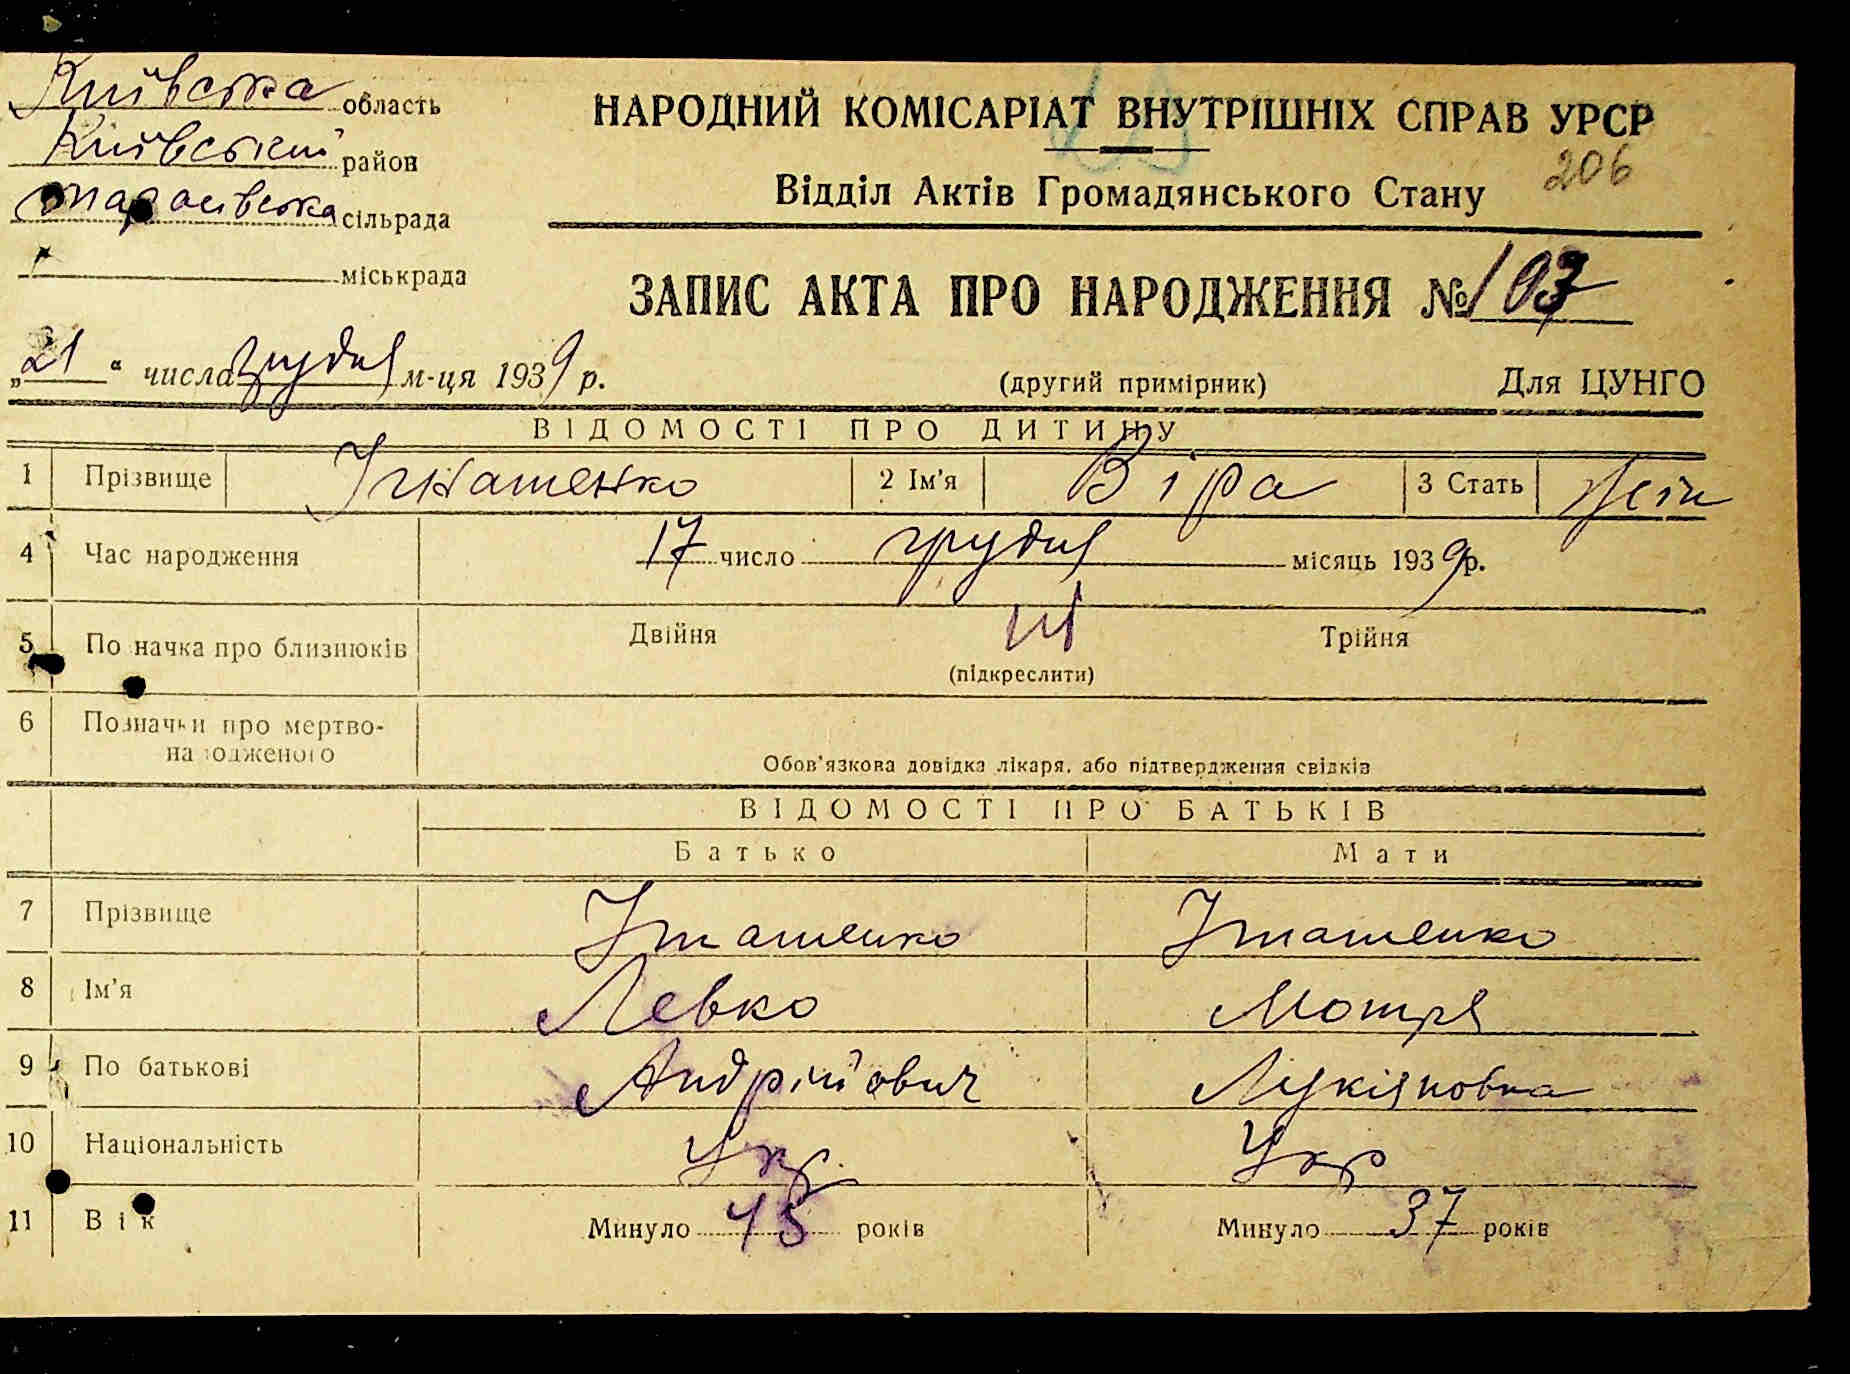 Київська область
Київський район
Тарасівська сільрада
міськрада
НАРОДНИЙ КОМІСАРІАТ ВНУТРІШНІХ СПРАВ УРСР
206
Відділ Актів Громадянського Стану
ЗАПИС АКТА ПРО НАРОДЖЕННЯ № 103
„21“ числа грудня м-ця 1939 р.
(другий примірник)
Для ЦУНГО
ВІДОМОСТІ ПРО ДИТИНУ
1 Прізвище Ігнатенко 2 Ім'я Віра 3 Стать жін
4 Час народження 17 число грудня місяць 1939 р.
5 По начка про близнюків Двійня ні Трійня
(підкреслити)
6 Позначки про мертво-
на одженого
Обов'язкова довідка лікаря, або підтвердження свідків
ВІДОМОСТІ ПРО БАТЬКІВ
Батько Мати
7 Прізвище Ігнатенко Ігнатенко
8 Ім'я Левко Мотря
9 По батькові Андрійович Лукіяновна
10 Національність Укр. Укр
11 Вік Минуло 45 років Минуло 37 років